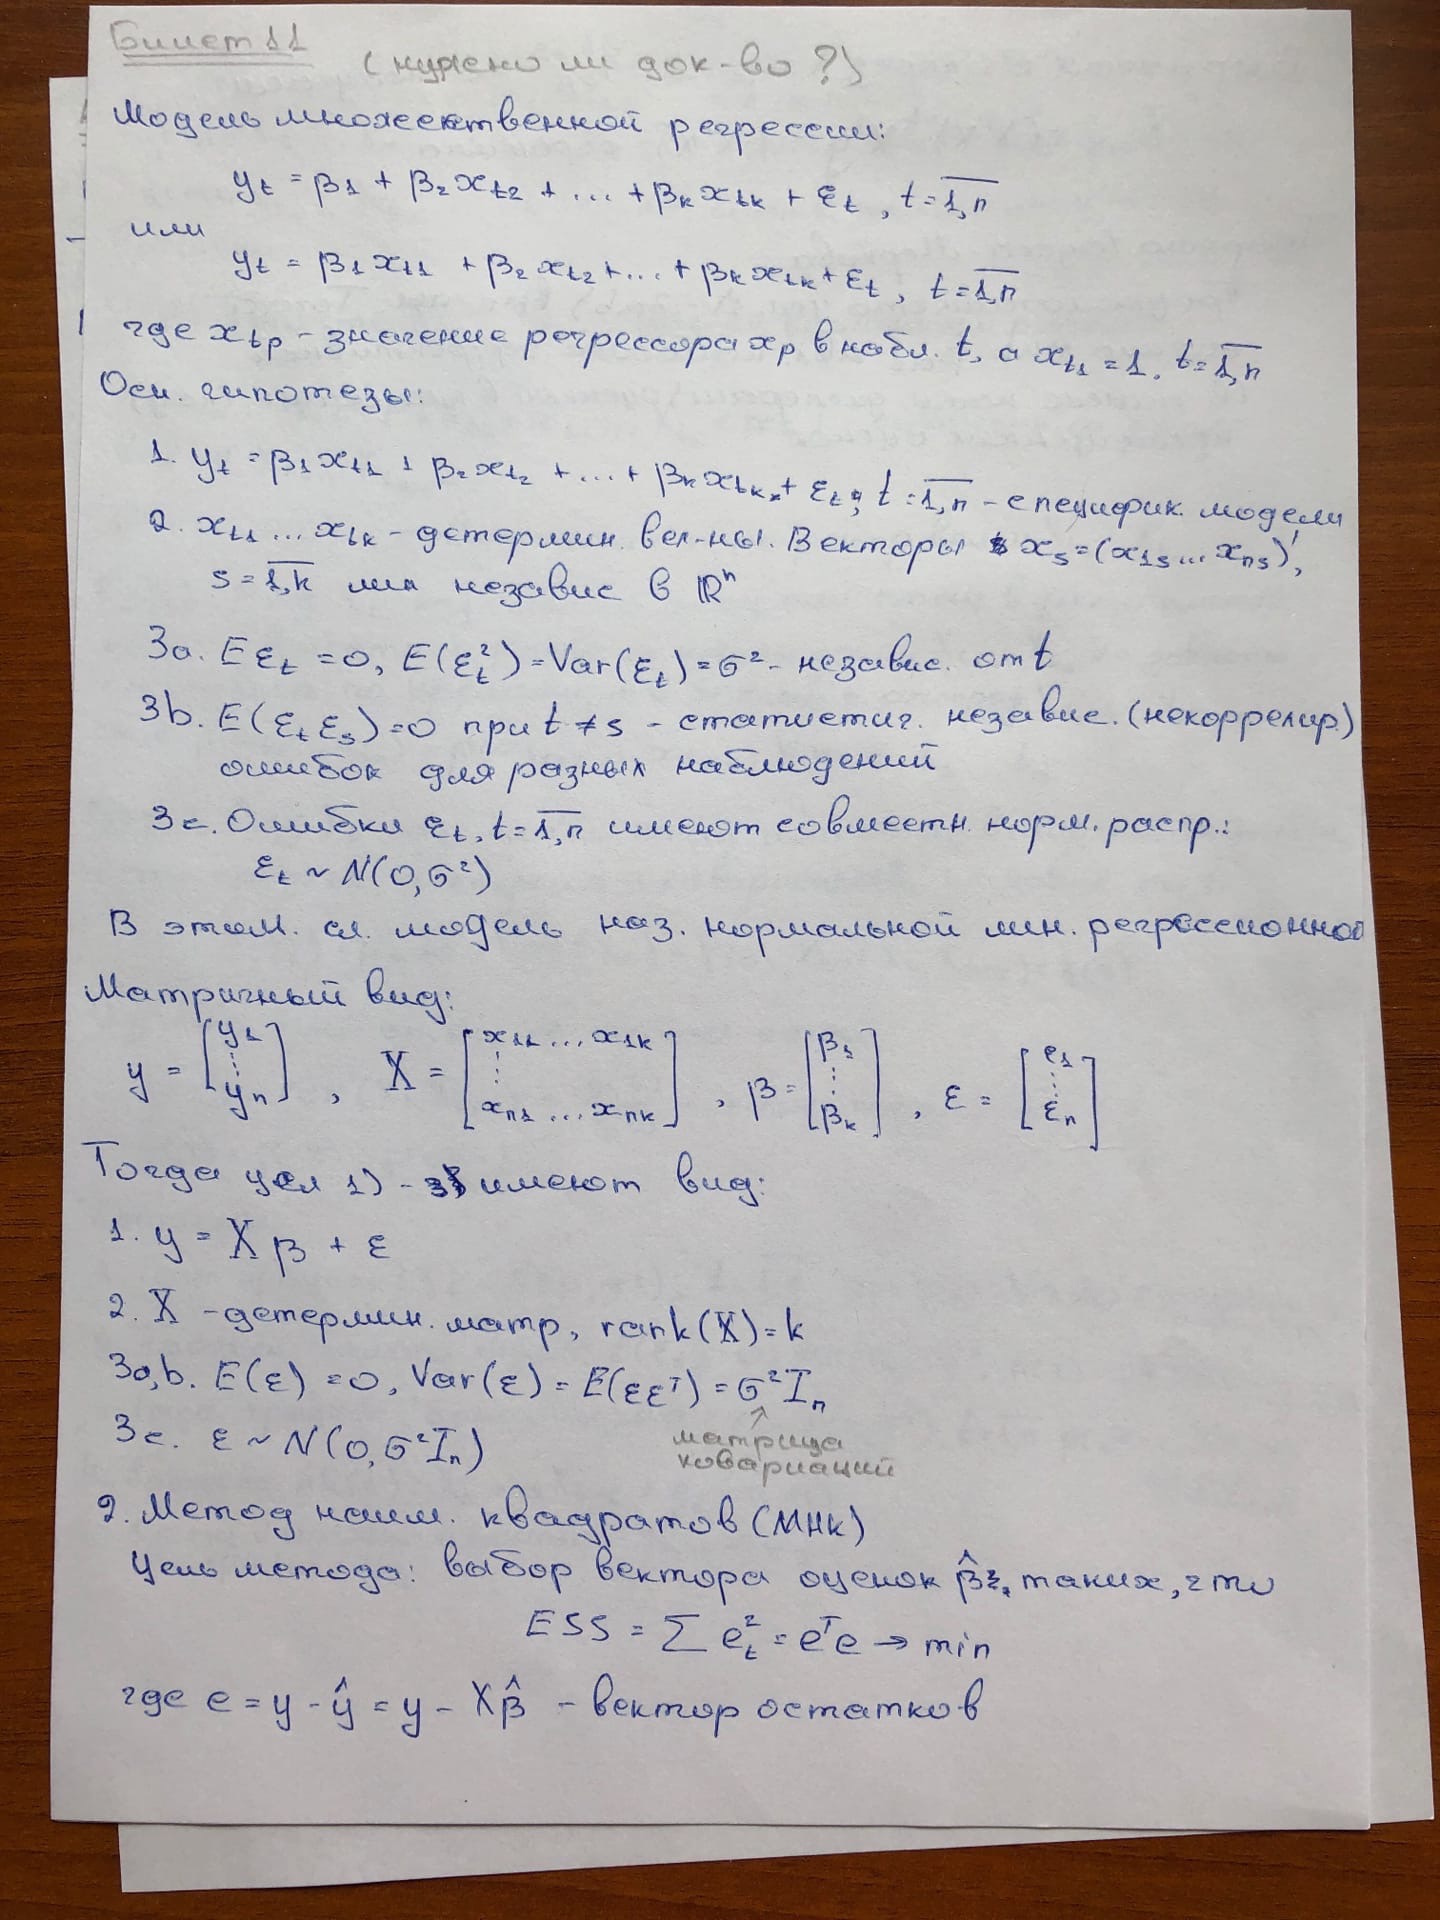 Билет 11
(нужно ли док-во?)
Модель множественной регрессии:
yₜ = β₁ + β₂xₜ₂ + ... + βₖxₜₖ + εₜ, t = 1,n
или
yₜ = β₁xₜ₁ + β₂xₜ₂ + ... + βₖxₜₖ + εₜ, t = 1,n
где xₜₚ - значение регрессора xₚ в набл. t, а xₜ₁ = 1, t = 1,n
Осн. гипотезы:
1. yₜ = β₁xₜ₁ + β₂xₜ₂ + ... + βₖxₜₖ + εₜ, t = 1,n - специфик. модели
2. xₜ₁ ... xₜₖ - детермин. вел-ны. Векторы xₛ = (x₁ₛ ... xₙₛ)',
s = 1,k лин независ в ℝⁿ
3a. Eεₜ = 0, E(εₜ²) = Var(εₜ) = σ² - независ. от t
3b. E(εₜεₛ) = 0 при t ≠ s - статистич. независ. (некоррелир.)
ошибок для разных наблюдений
3c. Ошибки εₜ, t = 1,n имеют совместн. норм. распр.:
εₜ ~ N(0, σ²)
В этом. сл. модель наз. нормальной лин. регрессионной
Матричный вид:
y = [y₁ ⋮ yₙ], X = [x₁₁ ... x₁ₖ ⋮ xₙ₁ ... xₙₖ], β = [β₁ ⋮ βₖ], ε = [ε₁ ⋮ εₙ]
Тогда усл 1) - 3) имеют вид:
1. y = Xβ + ε
2. X - детермин. матр, rank(X) = k
3a,b. E(ε) = 0, Var(ε) = E(εεᵀ) = σ²Iₙ
3c. ε ~ N(0, σ²Iₙ)
матрица
ковариаций
2. Метод наим. квадратов (МНК)
Цель метода: выбор вектора оценок β̂, таких, что
ESS = ∑ eₜ² = eᵀe → min
где e = y - ŷ = y - Xβ̂ - вектор остатков